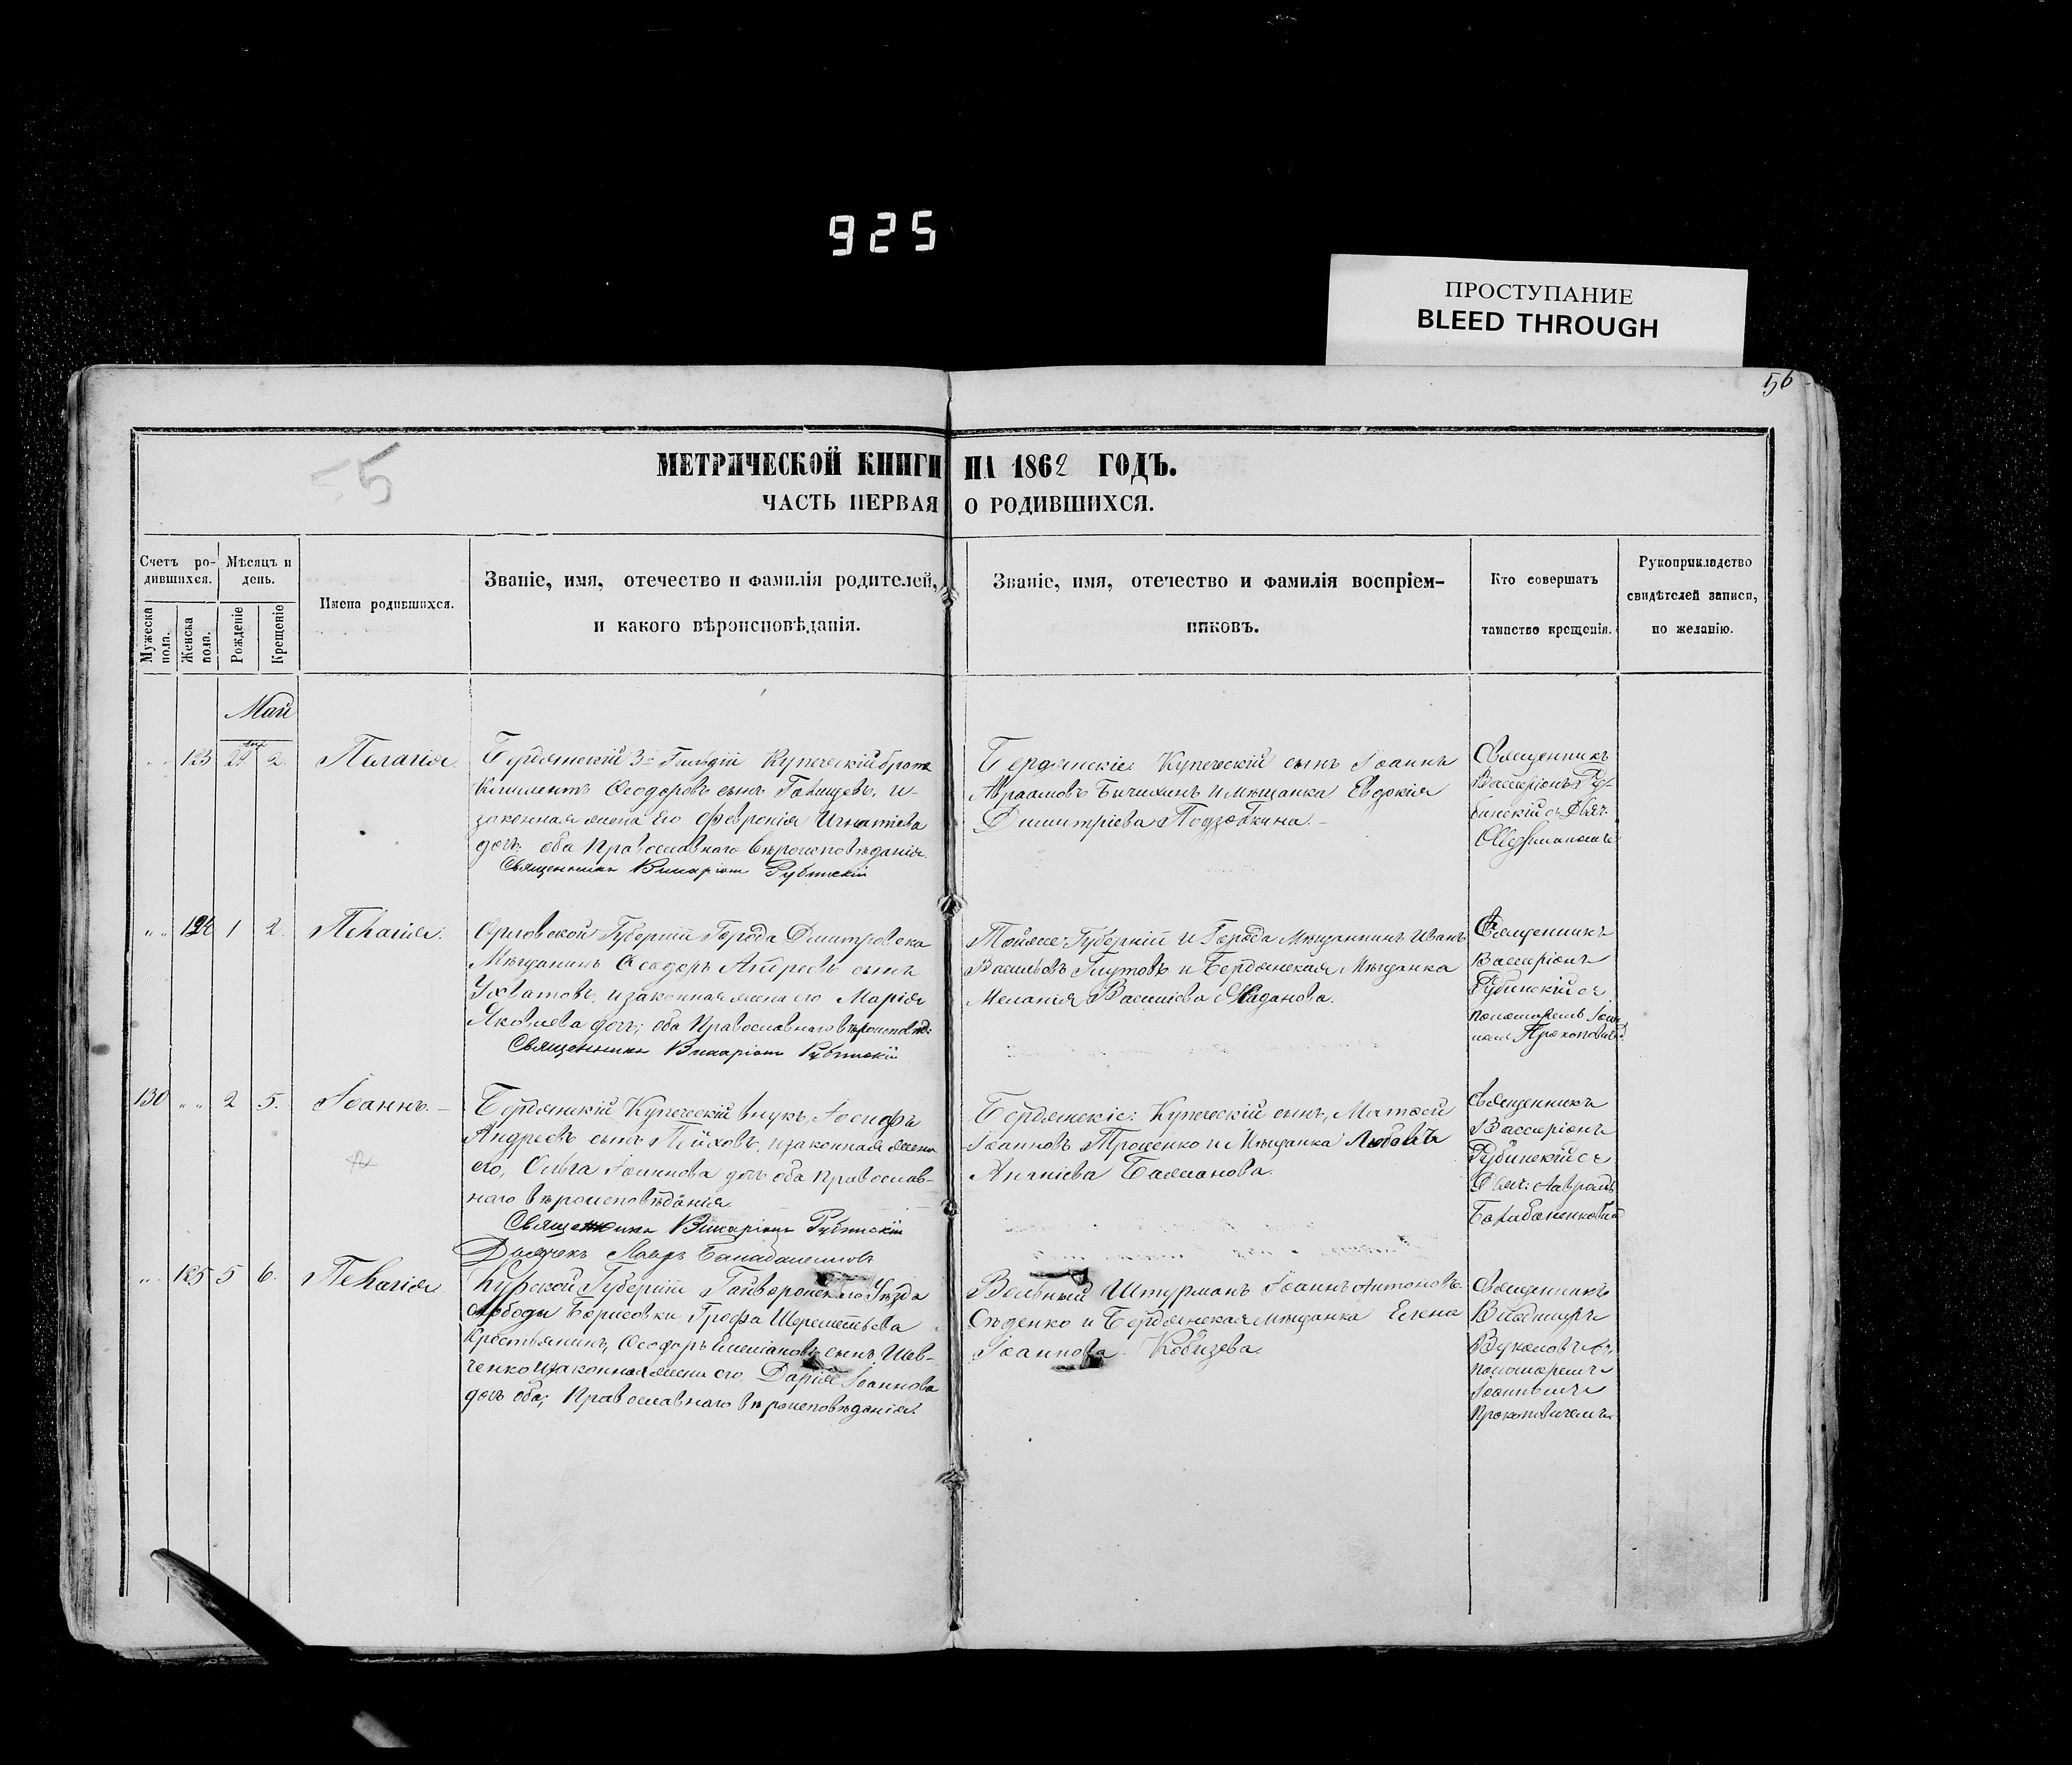 925
ПРОСТУПАНИЕ
BLEED THROUGH
56
55
МЕТРИЧЕСКОЙ КНИГИ НА 1862 ГОДЪ.
ЧАСТЬ ПЕРВАЯ О РОДИВШИХСЯ.
Счетъ ро-
дившихся.
Мужеска пола.
Женска пола.
Мѣсяцъ и
день.
Рожденіе
Крещеніе
Имена родившихся.
Званіе, имя, отечество и фамилія родителей,
и какого вѣроисповѣданія.
Званіе, имя, отечество и фамилія воспріем-
никовъ.
Кто совершатъ
таинство крещенія.
Рукоприкладство
свидѣтелей записи,
по желанію.
Май
123 29 2 Пелагія
Бердянскій 3й Гильдіи Купеческій братъ
Климентъ Ѳеодоровъ сынъ и
законная жена его Февронія Игнатіева
дочь: оба Православнаго вѣроисповѣданія.
Священникъ Рубинскій
Бердянскіе: Купеческій сынъ Іоаннъ
Авраамовъ и мѣщанка Евдокія
Димитріева
Священникъ
Виссаріонъ Ру-
бинскій съ Дьяч.
124 1 2 Пелагія.
Орловской Губерніи Города Дмитровска
Мѣщанинъ Ѳеодоръ Андреевъ сынъ
Ухватовъ, и законная жена его Марія
Яковлева дочь; оба Православнаго вѣроисповѣд:
Священникъ Рубинскій
Тойже Губерніи и Города Мѣщанинъ Иванъ
Васильевъ и Бердянская Мѣщанка
Меланія Васильева
Священникъ
Виссаріонъ
Рубинскій съ
пономаремъ Іоан
номъ
130 2 5. Іоаннъ.
Бердянскій Купеческій внукъ, Іосифъ
Андреевъ сынъ и законная жена
его, Ольга Іоаннова дочь оба Православ-
наго вѣроисповѣданія
Священникъ Рубинскій
Дьячекъ Лавръ
Бердянскіе: Купеческій сынъ, Матѳей
Іоанновъ Троценко и Мѣщанка Любовь
Баламанова.
Священникъ
Виссаріонъ
Рубинскій съ
Дьяч: Лавромъ
125 5 6. Пелагія
Курской Губерніи Грайворонскаго Уѣзда
Слободы Борисовки Графа Шереметьева
Крестьянинъ, Ѳеодоръ сынъ Шев-
ченко и законная жена его Дарія Іоаннова
дочь оба; Православнаго вѣроисповѣданія.
Вольный Штурманъ Іоаннъ Антоновъ
и Бердянская Мѣщанка Елена
Іоаннова
Священникъ
Владиміръ
Вуколовъ съ
пономаремъ
Іоанномъ
Прокоповичемъ